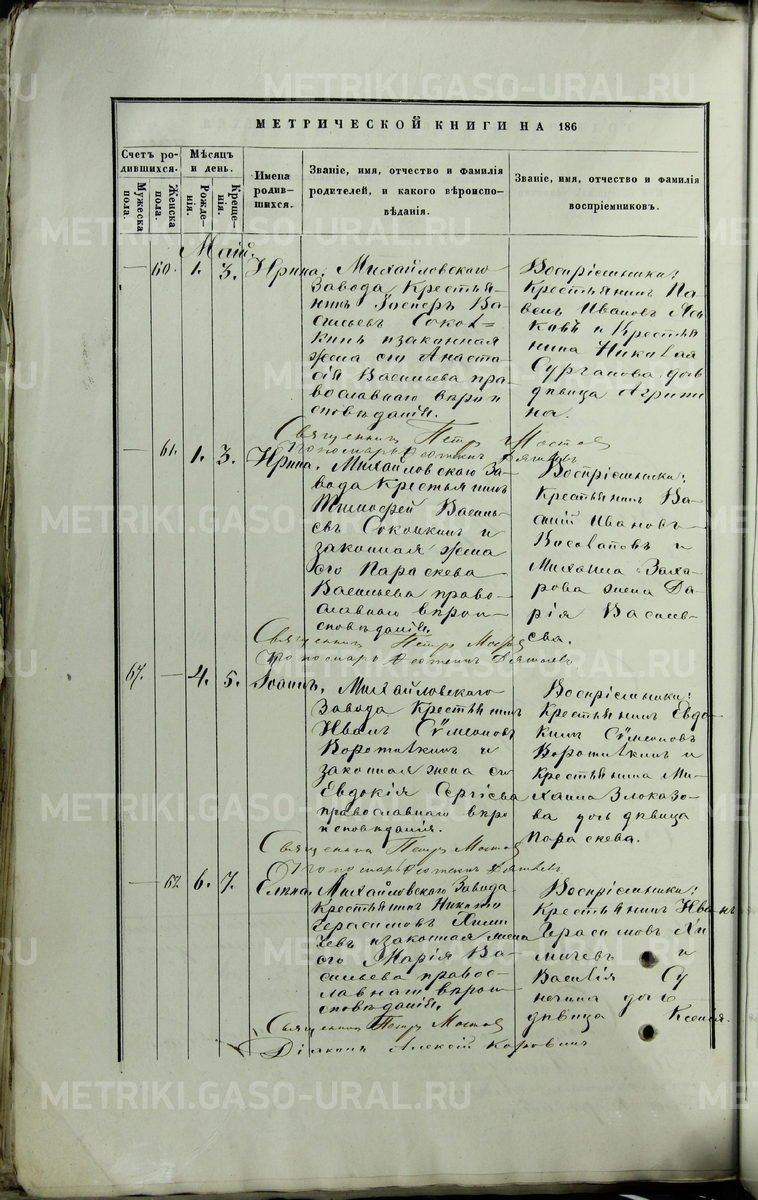 МЕТРИЧЕСКОЙ КНИГИ НА 186
Счетъ родившихся.
Мужеска пола.
Женска пола.
Мѣсяцъ и день.
Рожденія.
Крещенія.
Имена родившихся.
Званіе, имя, отчество и фамилія
родителей, и какого вѣроиспо-
вѣданія.
Званіе, имя, отчество и фамилія
воспріемниковъ.
Май.
— 60. 1. 3. Ирина.
Михайловскаго
Завода Крестья-
нинъ Ва-
сильевъ Сокол=
кинъ и законная
жена его Анаста-
сія Васильева пра-
вославнаго вѣрои
сповѣданія.
Воспріемники:
Крестьянинъ Па-
велъ Ивановъ
и Крестья
нина Николая
Сурганова дочь
дѣвица Агрипи
на.
Священникъ Петръ Мостов
Пономарь
— 61. 1. 3. Ирина.
Михайловскаго За-
вода Крестьянинъ
Тимофей Василь-
евъ Соколкинъ и
законная жена
его Параскева
Васильева право-
славнаго вѣрои-
сповѣданія.
Воспріемники:
Крестьянинъ Ва-
силій Ивановъ
и
Михаила Заха-
рова жена Да-
рія Василь-
ева.
Священникъ Петръ Мостов
Пономарь
67. — 4. 5. Іоаннъ.
Михайловскаго
Завода Крестьянинъ
Иванъ Сѵмеоновъ
Воротилкинъ и
законная жена его
Евдокія Сергіева
православнаго вѣро
исповѣданія.
Воспріемники:
Крестьянинъ Евдо-
кимъ Сѵмеоновъ
Воротилкинъ и
Крестьянина Ми-
хаила Злоказо-
ва дочь дѣвица
Параскева.
Священникъ Петръ Мостов
Пономарь
— 62. 6. 7. Елена.
Михайловскаго Завода
Крестьянинъ Никита
Герасимовъ Хими
чевъ и законная жена
его Марія Ва-
сильева правос-
лавнаго вѣрои-
сповѣданія.
Воспріемники:
Крестьянинъ Иванъ
Герасимовъ Хи-
мичевъ и
Василія
дочь
дѣвица Ксенія.
Священникъ Петръ Мостов
Діаконъ Алексій Коровинъ
METRIKI.GASO-URAL.RU